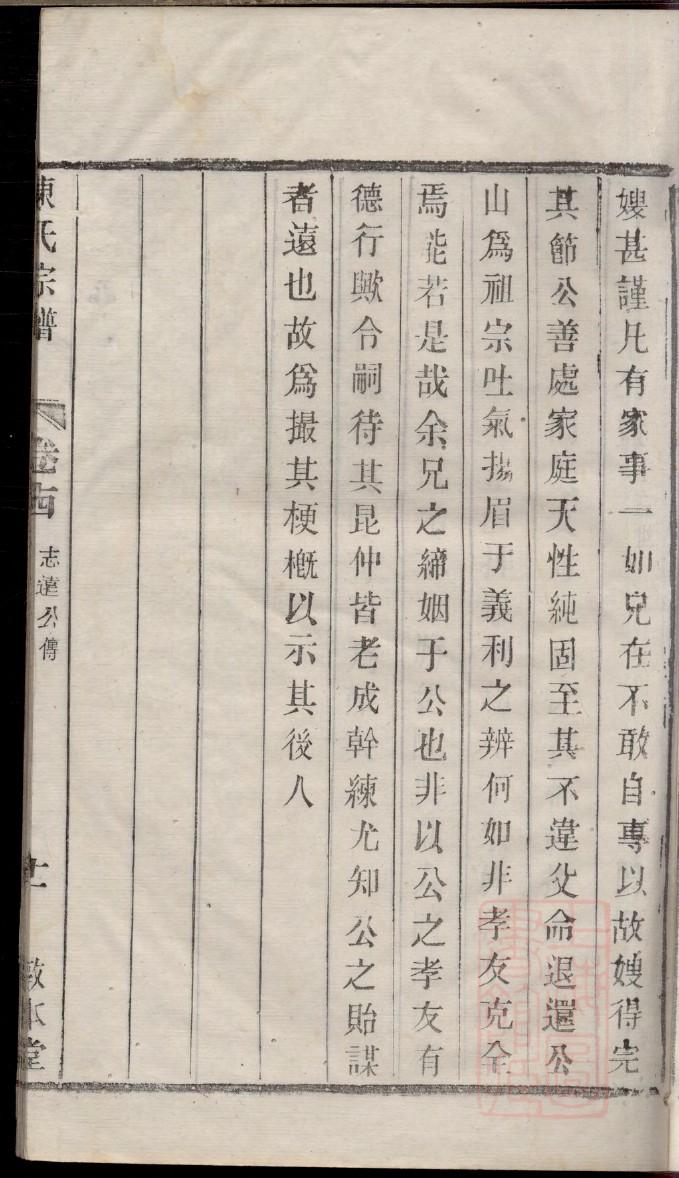 嫂甚謹凡有家事一如兄在不敢自專以故嫂得完
其節公善處家庭天性純固至其不違父命退還公
山爲祖宗吐氣揚眉于義利之辨何如非孝友克全
焉能若是哉余兄之締姻于公也非以公之孝友有
德行歟令嗣待其昆仲皆老成幹練尤知公之貽謀
者遠也故爲撮其梗槪以示其後人
陳氏宗譜
卷十四
志遠公傳
十一
敦本堂